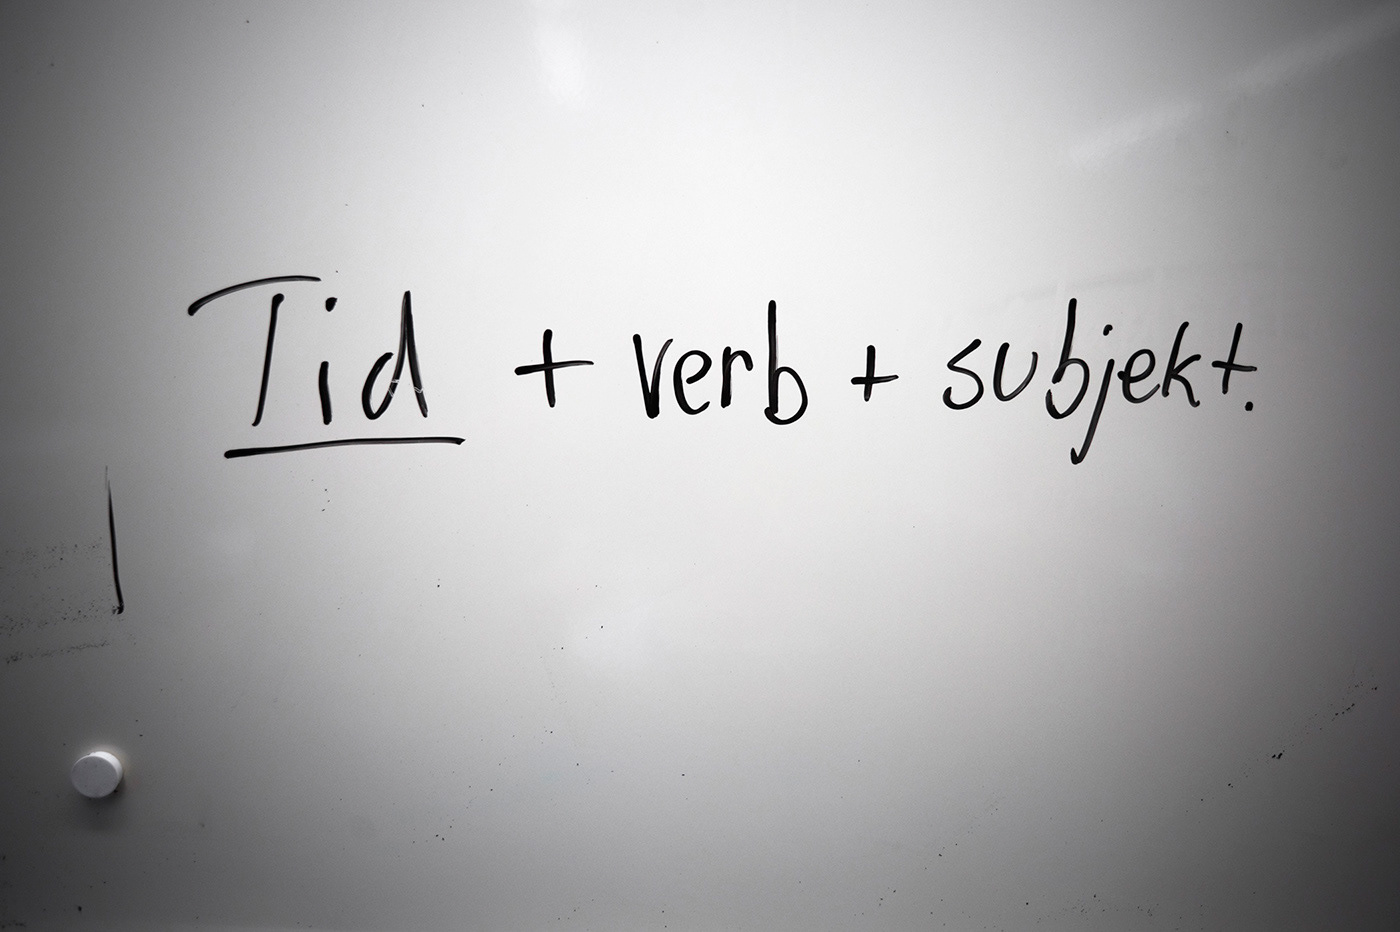 Tid + verb + subjekt.